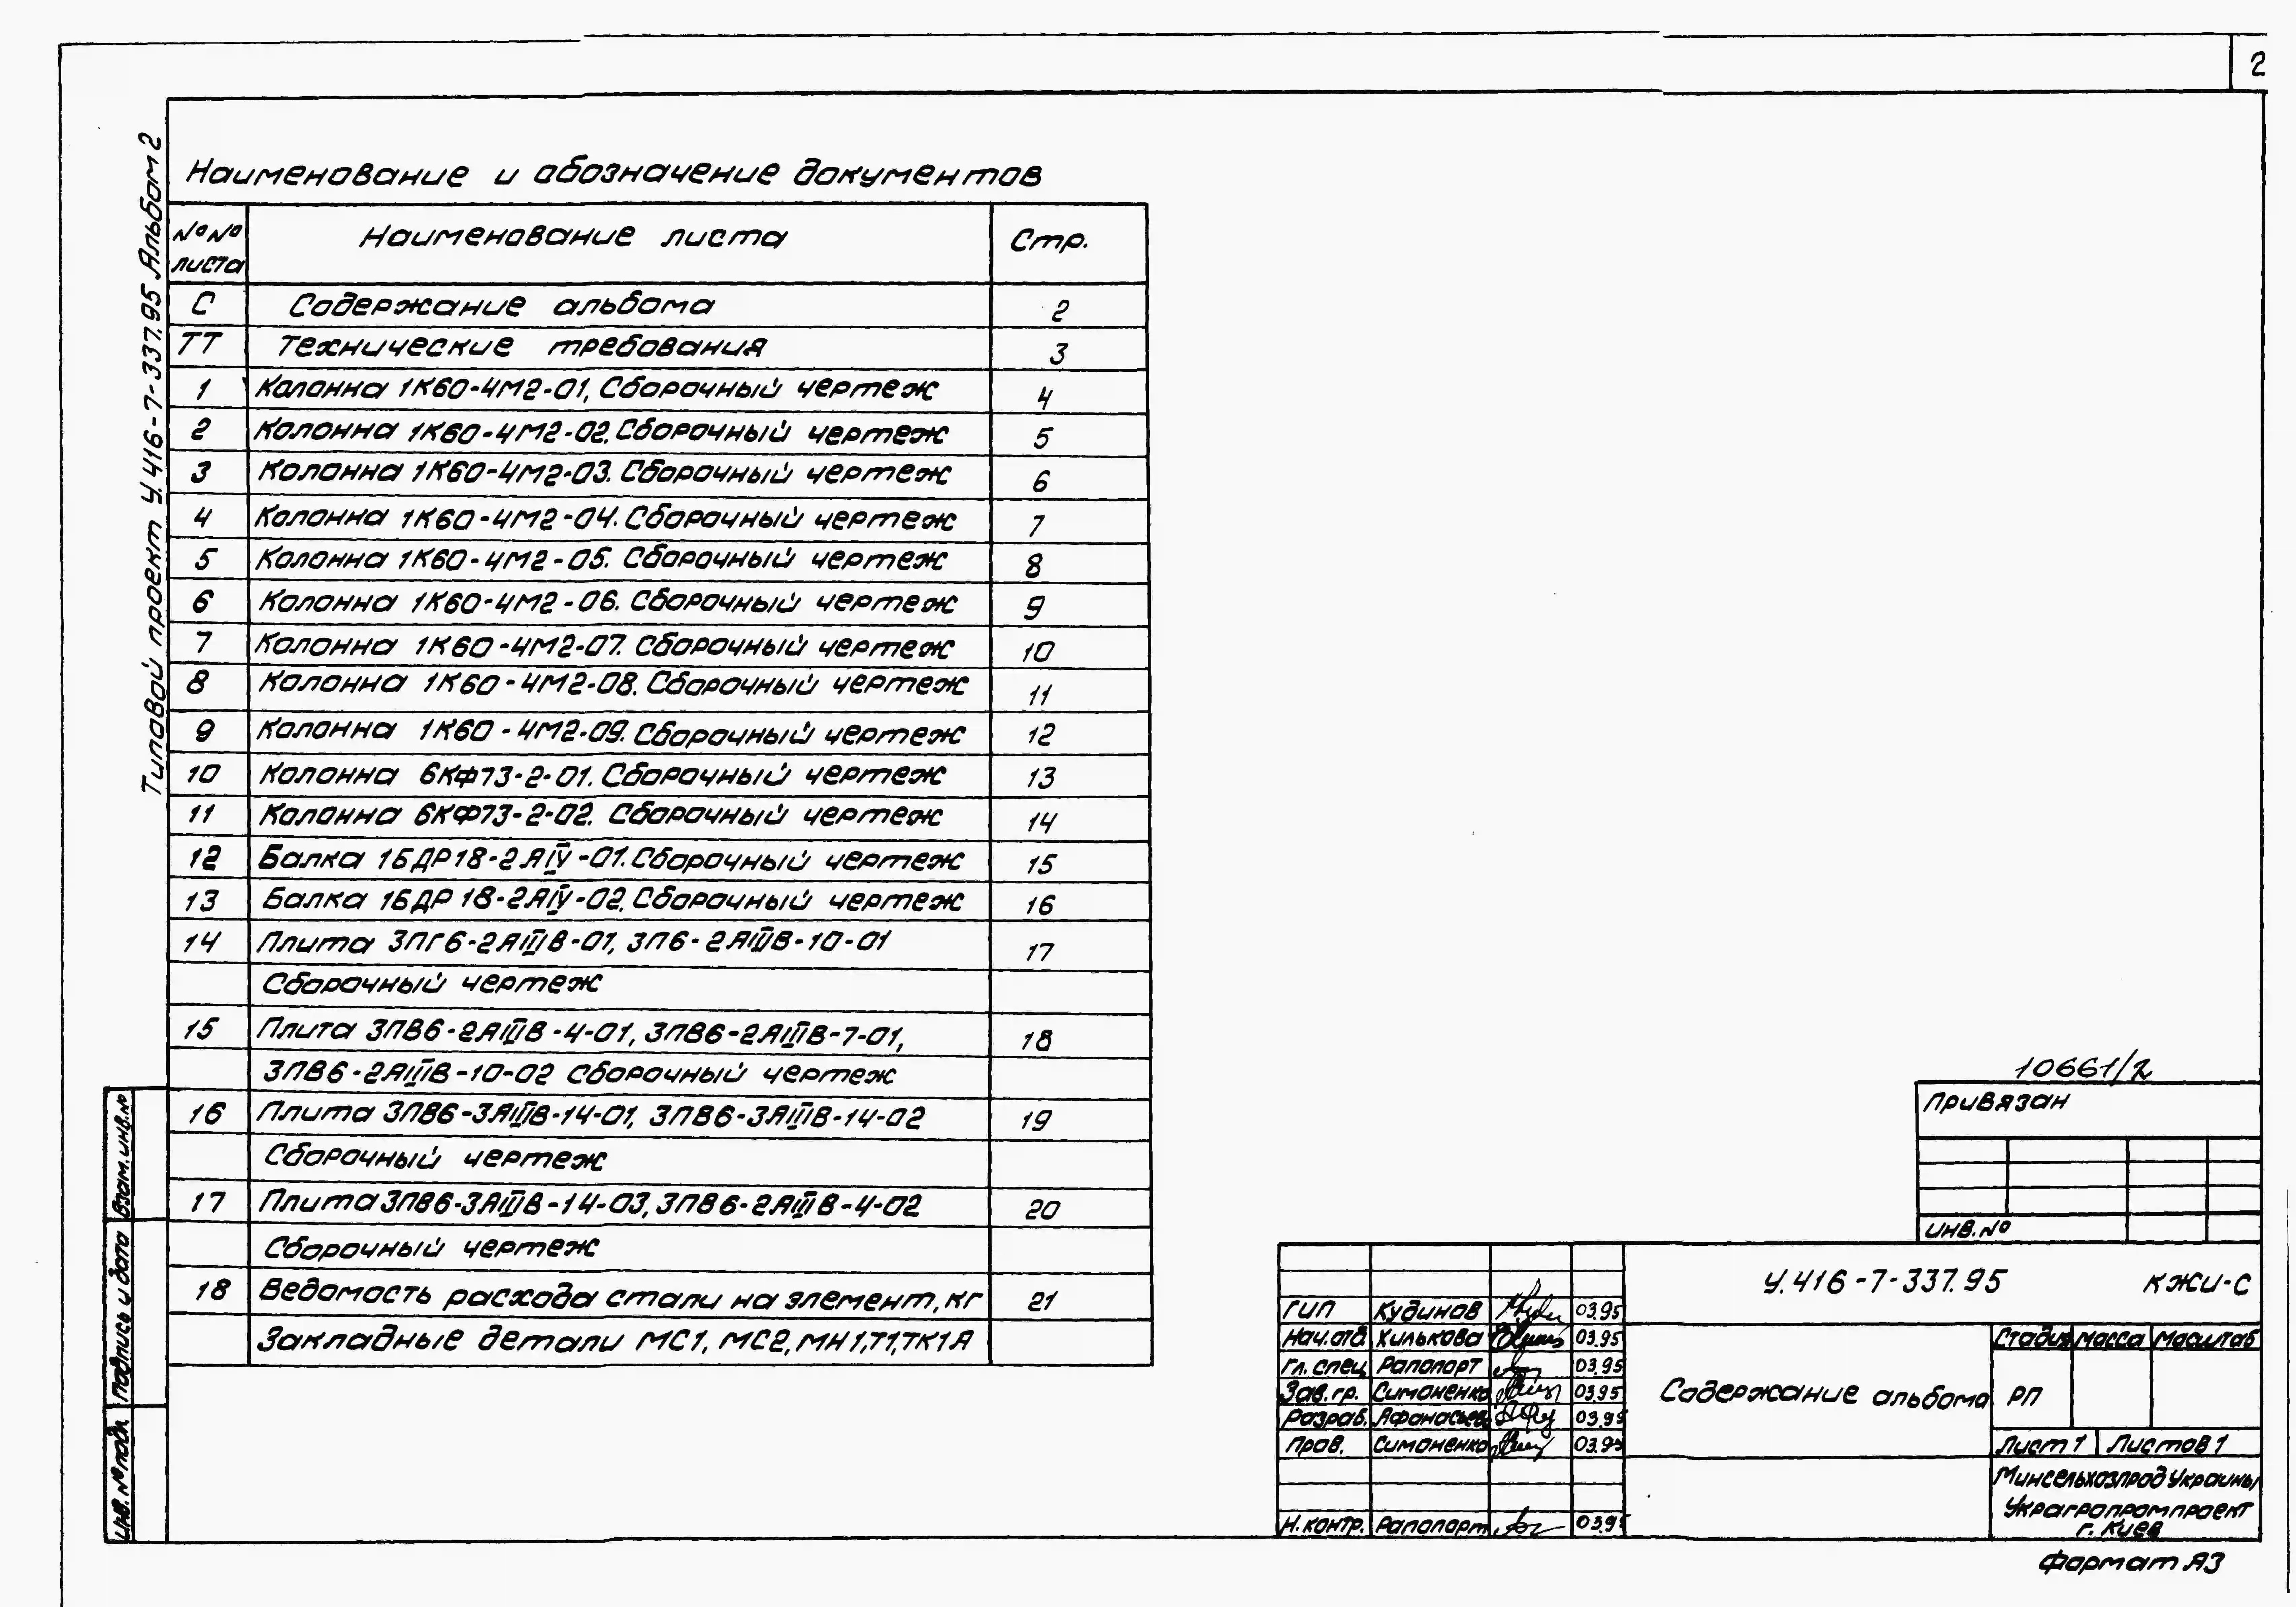 2
Типовой проект У.416-7-337.95 Альбом 2
Наименование и обозначение документов
№№ листа Наименование листа Стр.
С Содержание альбома 2
ТТ Технические требования 3
1 Колонна 1К60-4М2-01, Сборочный чертеж 4
2 Колонна 1К60-4М2-02. Сборочный чертеж 5
3 Колонна 1К60-4М2-03. Сборочный чертеж 6
4 Колонна 1К60-4М2-04. Сборочный чертеж 7
5 Колонна 1К60-4М2-05. Сборочный чертеж 8
6 Колонна 1К60-4М2-06. Сборочный чертеж 9
7 Колонна 1К60-4М2-07. Сборочный чертеж 10
8 Колонна 1К60-4М2-08. Сборочный чертеж 11
9 Колонна 1К60-4М2-09. Сборочный чертеж 12
10 Колонна 6КФ73-2-01. Сборочный чертеж 13
11 Колонна 6КФ73-2-02. Сборочный чертеж 14
12 Балка 1БДР18-2АIV-01. Сборочный чертеж 15
13 Балка 1БДР18-2АIV-02. Сборочный чертеж 16
14 Плита 3ПГ6-2АIIIВ-01, 3П6-2АIIIВ-10-01 17
Сборочный чертеж
15 Плита 3ПВ6-2АIIIВ-4-01, 3ПВ6-2АIIIВ-7-01, 18
3ПВ6-2АIIIВ-10-02 Сборочный чертеж
16 Плита 3ПВ6-3АIIIВ-14-01, 3ПВ6-3АIIIВ-14-02 19
Сборочный чертеж
17 Плита 3ПВ6-3АIIIВ-14-03, 3ПВ6-2АIIIВ-4-02 20
Сборочный чертеж
18 Ведомость расхода стали на элемент, кг 21
Закладные детали МС1, МС2, МН1, Т1, ТК1А
Взам. инв. №
Подпись и дата
Инв. № подл.
10661/2
Привязан
Инв. №
У.416-7-337.95 КЖИ-С
ГИП Кудинов 03.95
Нач. отд. Хилькова 03.95
Гл. спец. Рапопорт 03.95
Зав. гр. Симоненко 03.95
Разраб. Афанасьев 03.95
Пров. Симоненко 03.95
Н. контр. Рапопорт 03.95
Содержание альбома
Стадия Масса Масштаб
РП
Лист 1 Листов 1
Минсельхозпрод Украины
Украгропромпроект
г. Киев
Формат А3